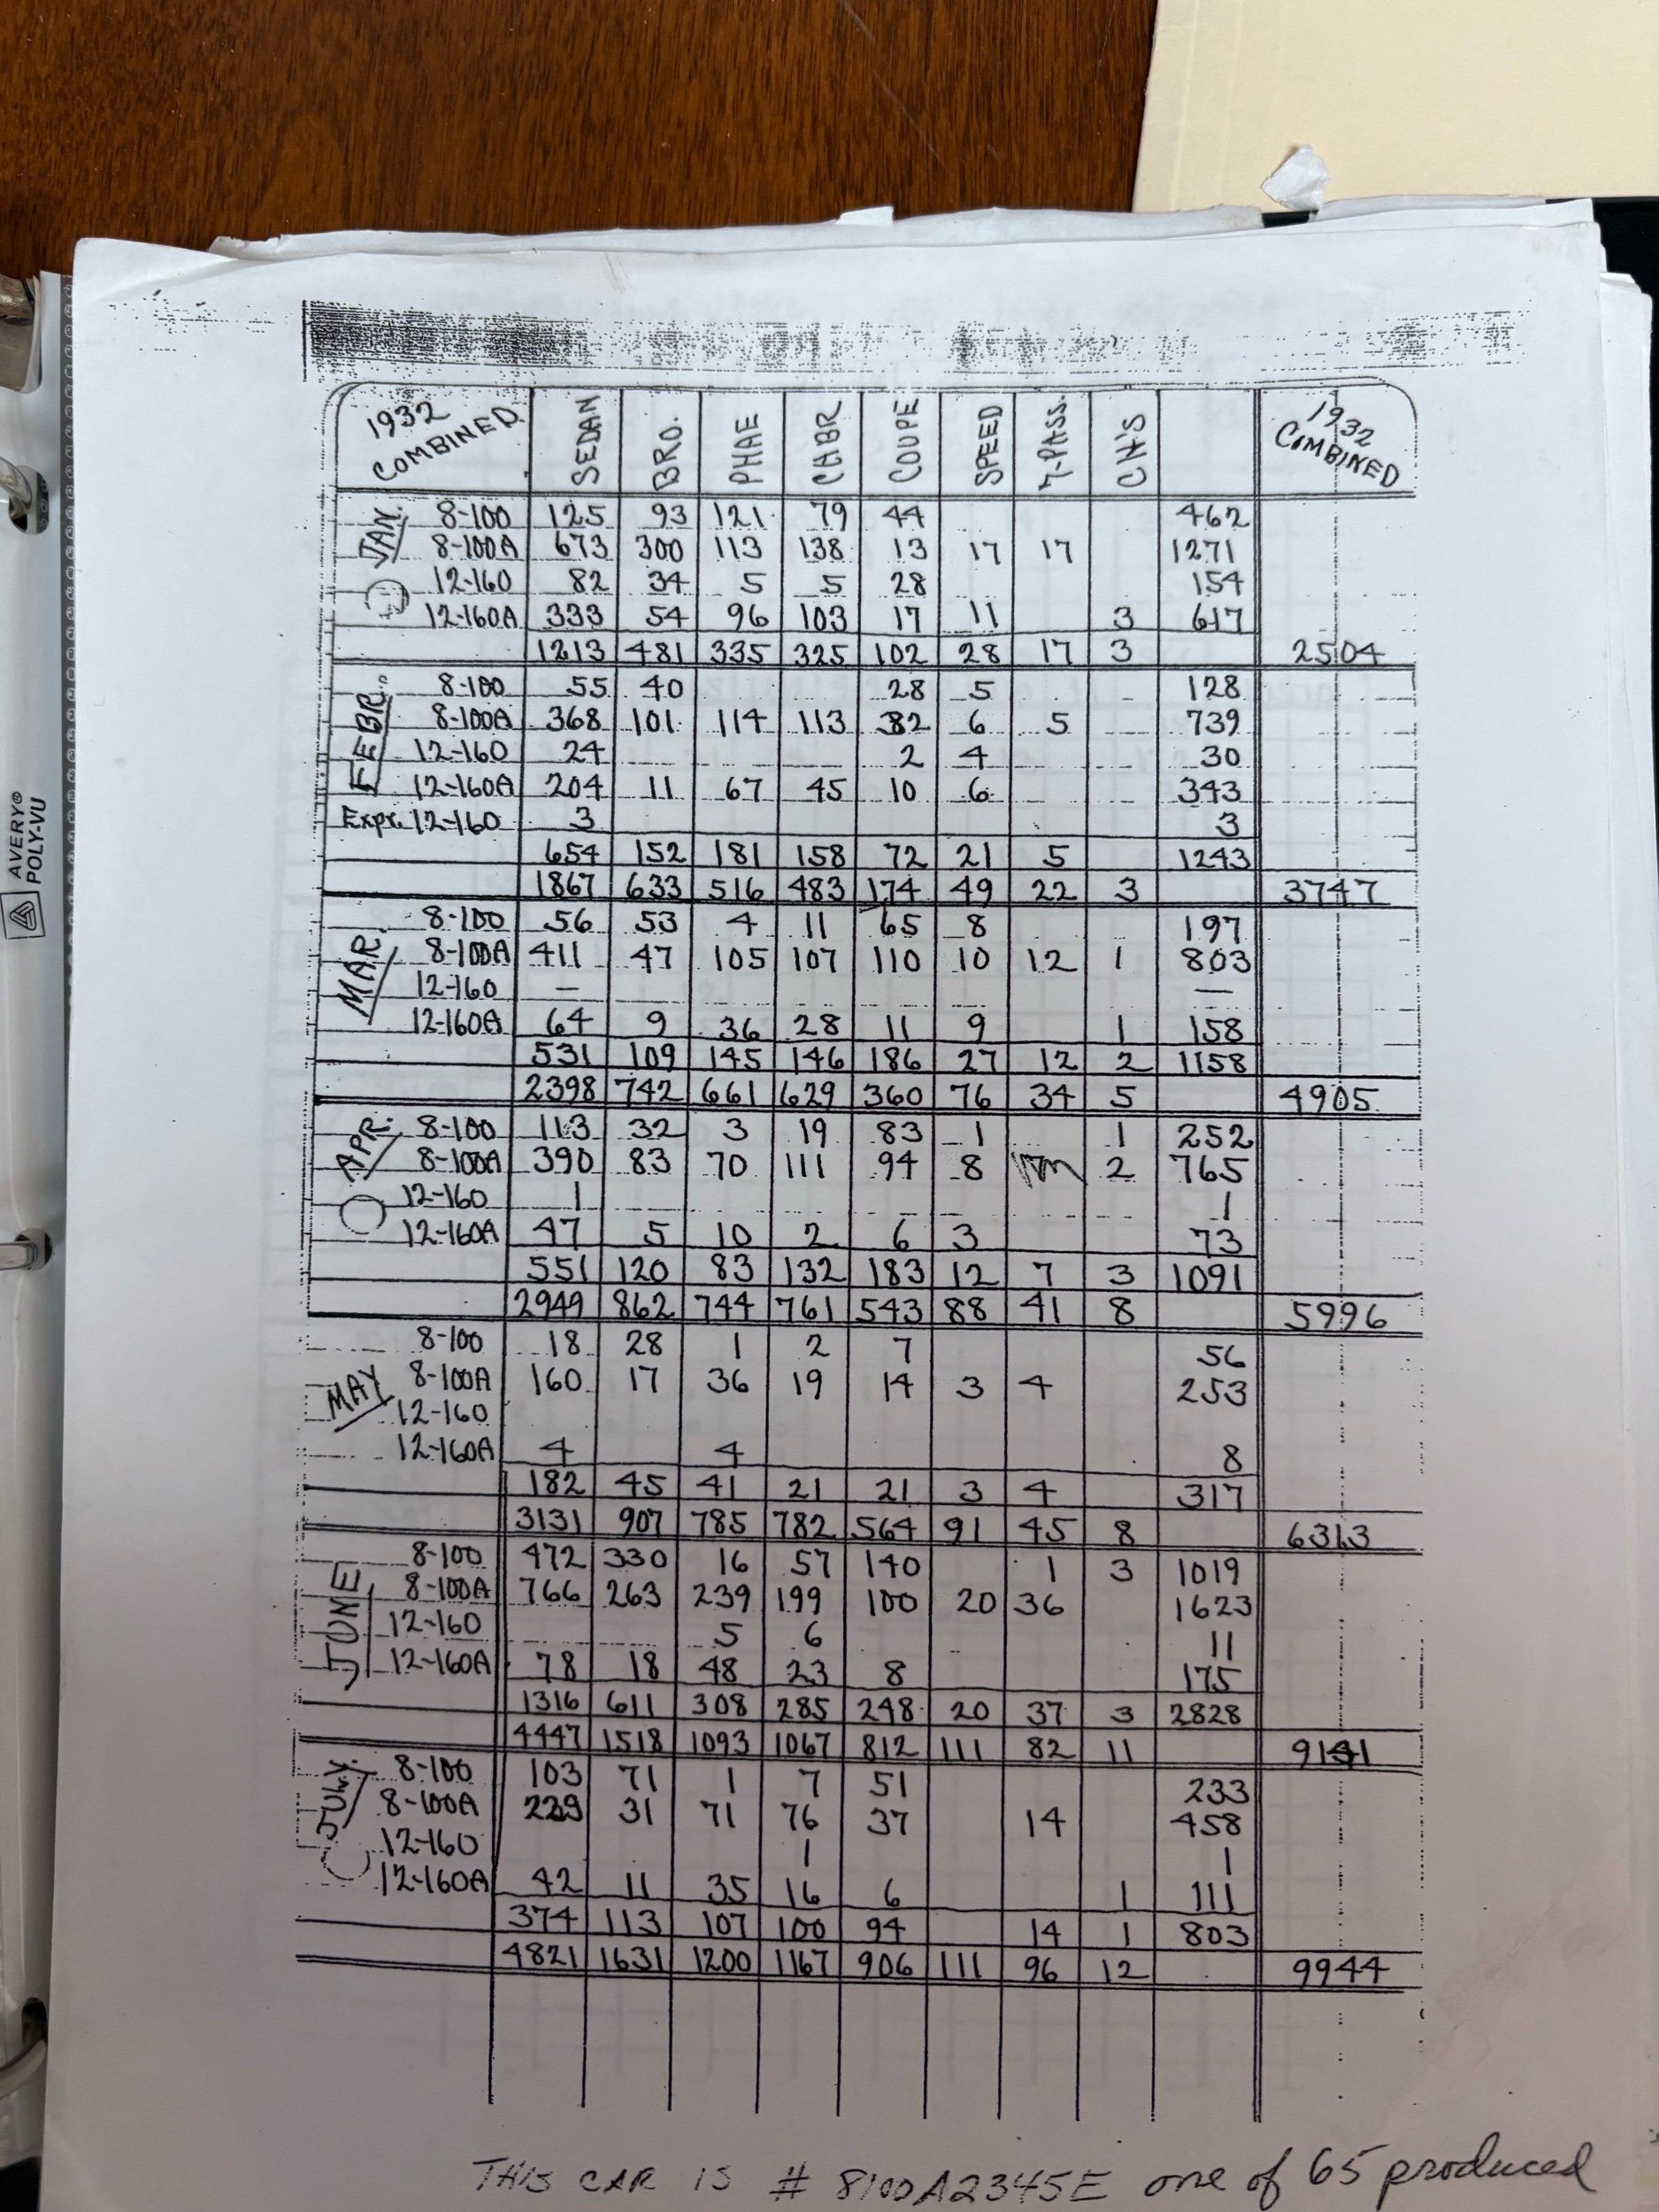 1932 COMBINED SEDAN BRO. PHAE CABR COUPE SPEED 7-PASS. CH'S 1932 COMBINED
JAN. 8-100 125 93 121 79 44 462
8-100A 673 300 113 138 13 17 17 1271
12-160 82 34 5 5 28 154
12-160A 333 54 96 103 17 11 3 617
1213 481 335 325 102 28 17 3 2504
FEBR. 8-100 55 40 28 5 128
8-100A 368 101 114 113 32 6 5 739
12-160 24 2 4 30
12-160A 204 11 67 45 10 6 343
Expr. 12-160 3 3
654 152 181 158 72 21 5 1243
1867 633 516 483 174 49 22 3 3747
MAR. 8-100 56 53 4 11 65 8 197
8-100A 411 47 105 107 110 10 12 1 803
12-160 — —
12-160A 64 9 36 28 11 9 1 158
531 109 145 146 186 27 12 2 1158
2398 742 661 629 360 76 34 5 4905
APR. 8-100 113 32 3 19 83 1 1 252
8-100A 390 83 70 111 94 8 2 765
12-160 1 1
12-160A 47 5 10 2 6 3 73
551 120 83 132 183 12 7 3 1091
2949 862 744 761 543 88 41 8 5996
8-100 18 28 1 2 7 56
MAY 8-100A 160 17 36 19 14 3 4 253
12-160
12-160A 4 4 8
182 45 41 21 21 3 4 317
3131 907 785 782 564 91 45 8 6313
JUNE 8-100 472 330 16 57 140 1 3 1019
8-100A 766 263 239 199 100 20 36 1623
12-160 5 6 11
12-160A 78 18 48 23 8 175
1316 611 308 285 248 20 37 3 2828
4447 1518 1093 1067 812 111 82 11 9141
JULY. 8-100 103 71 1 7 51 233
8-100A 229 31 71 76 37 14 458
12-160 1 1
12-160A 42 11 35 16 6 1 111
374 113 107 100 94 14 1 803
4821 1631 1200 1167 906 111 96 12 9944
THIS CAR IS # 8100A2345E one of 65 produced
AVERY®
POLY-VU